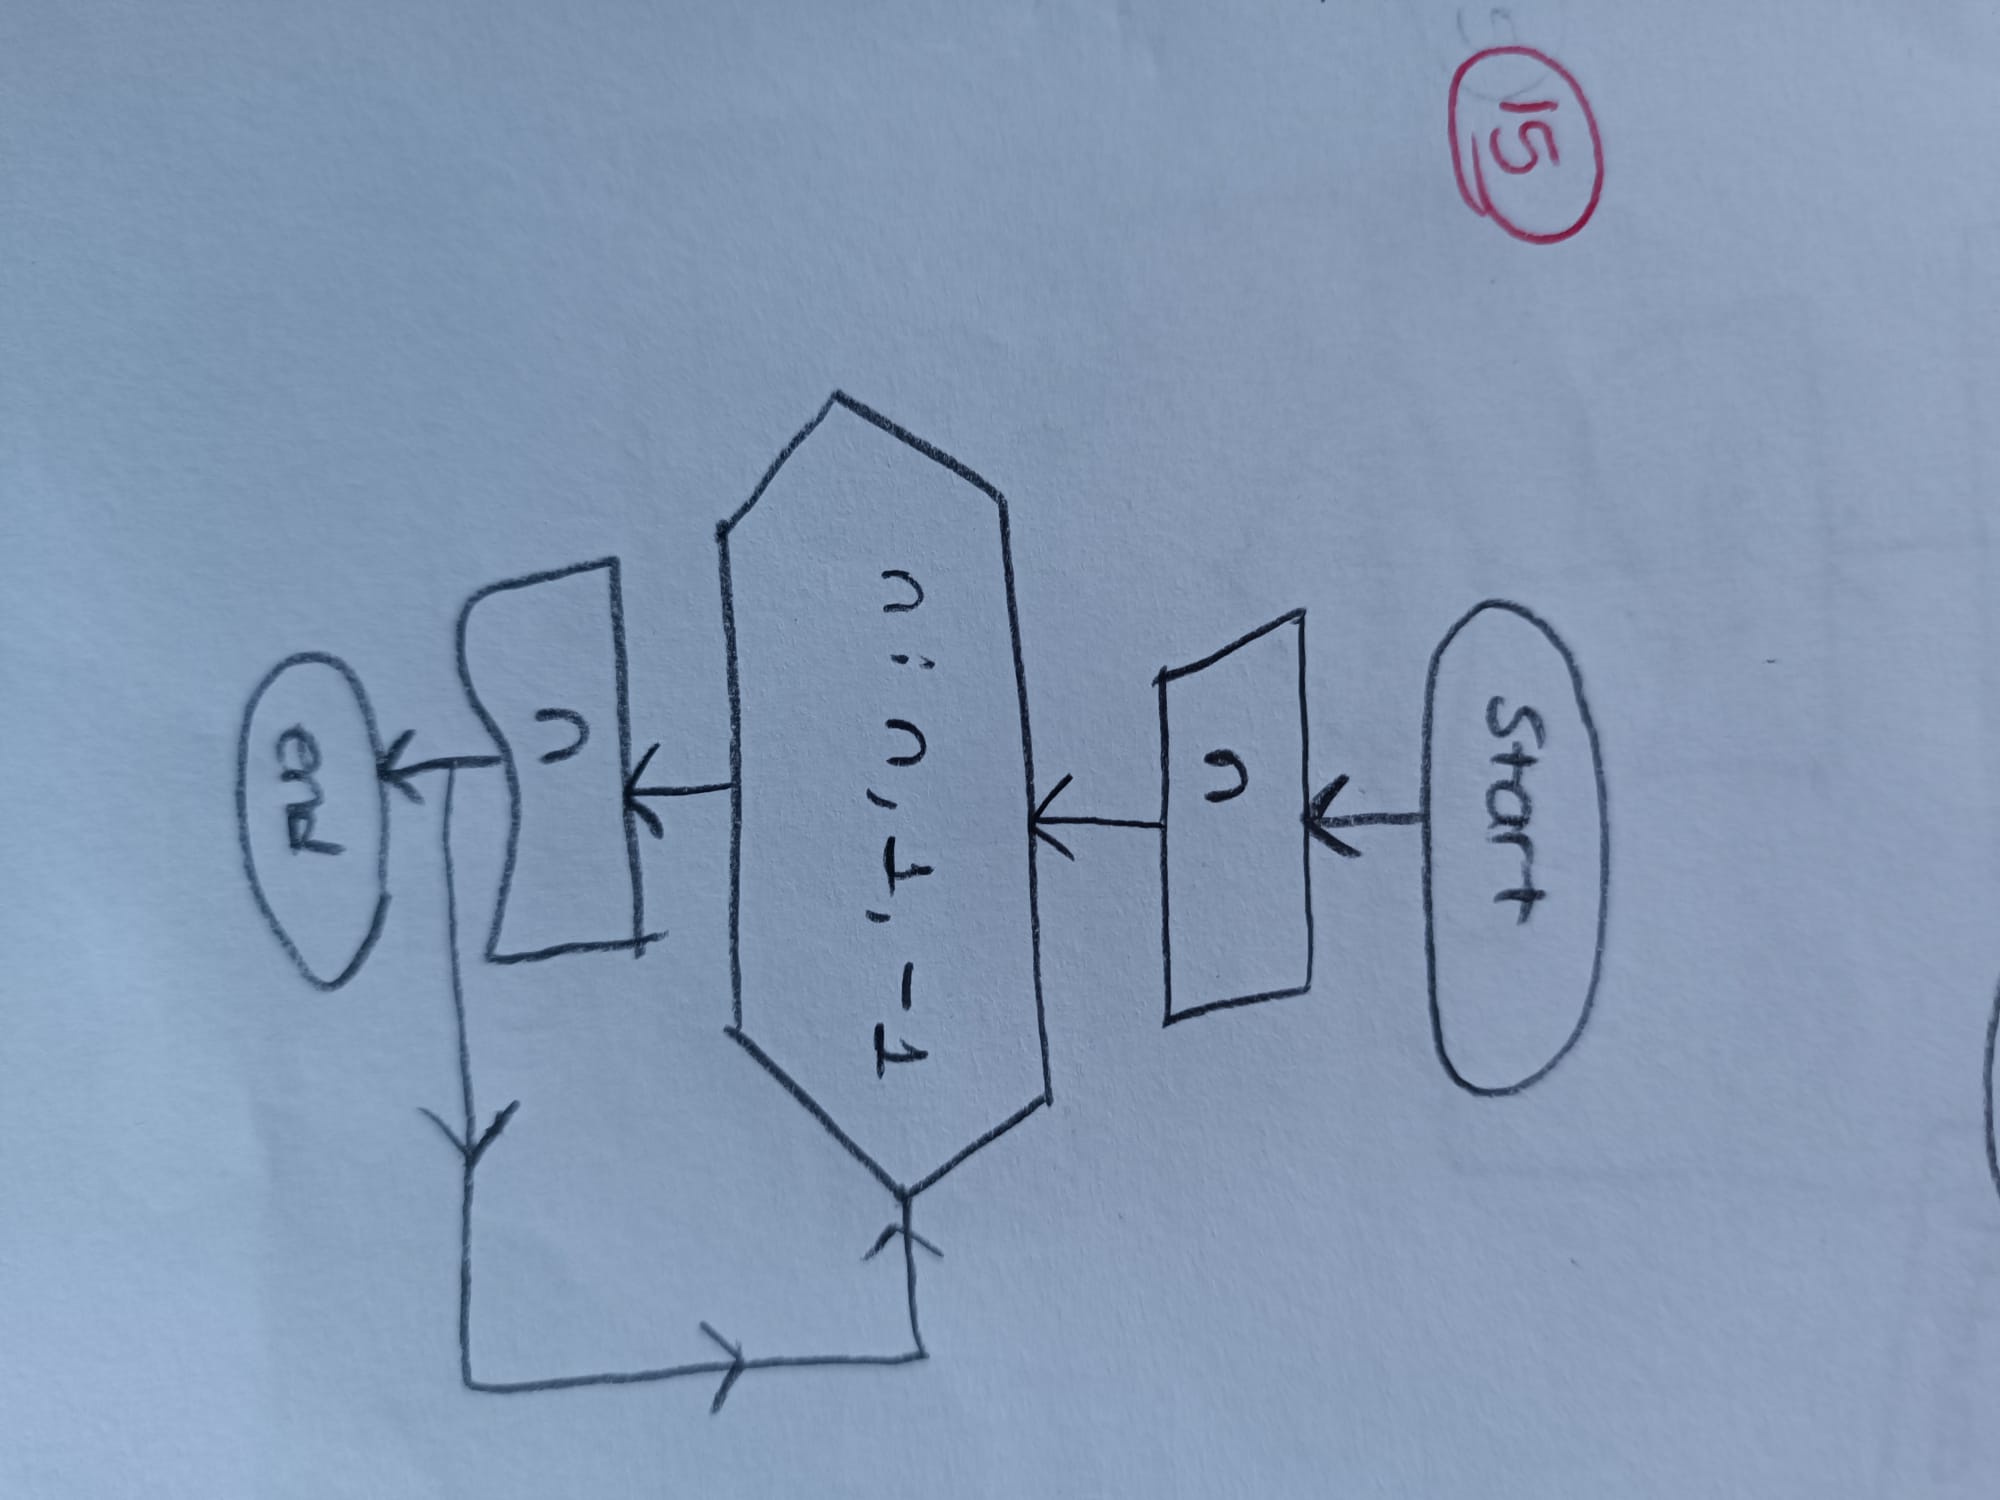 15
Start
n
n ; n , 1 , - 1
n
end